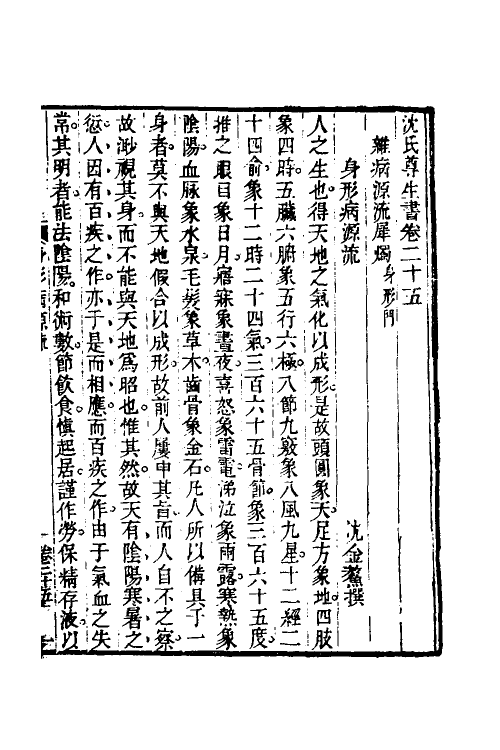 沈氏尊生書卷二十五
雜病源流犀燭身形門
身形病源流
沈金鰲撰
人之生也得天地之氣化以成形是故頭圓象天足方象地四肢
象四時五臟六腑象五行六極八節九竅象八風九星十二經二
十四俞象十二時二十四氣三百六十五骨節象三百六十五度
推之眼目象日月寤寐象晝夜喜怒象雷電涕泣象雨露寒熱象
陰陽血脉象水泉毛髮象草木齒骨象金石凡人所以備具于一
身者莫不與天地假合以成形故前人屢申其旨而人自不之察
故渺視其身而不能與天地爲昭也惟其然故天有陰陽寒暑之
愆人因有百疾之作亦于是而相應而百疾之作由于氣血之失
常其明者能法陰陽和術數節飲食愼起居謹作勞保精存液以